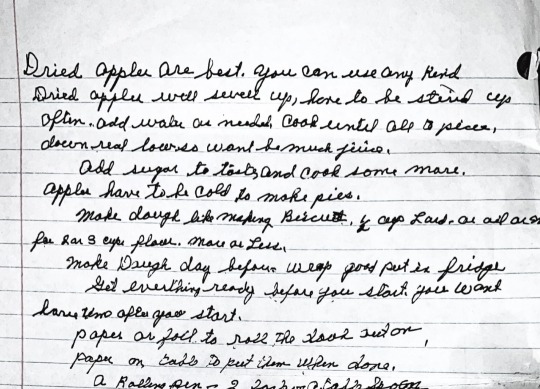 Dried apples are best. you can use any kind
Dried apples will swell up, have to be stired up
often. add water as needed, Cook until all to pieces,
down real low so wont be much juice.
add sugar to taste, and cook some more.
apples have to be cold to make pies.
make dough like making Biscuit, cup Lard. or oil or
for 2 or 3 cups flour. more or Less.
make Dough day before wrap good put in fridge
Get everthing ready before you start. you wont
have time after you start.
paper or foil to roll the out on,
paper on table to put them when done.
a Rolling pin